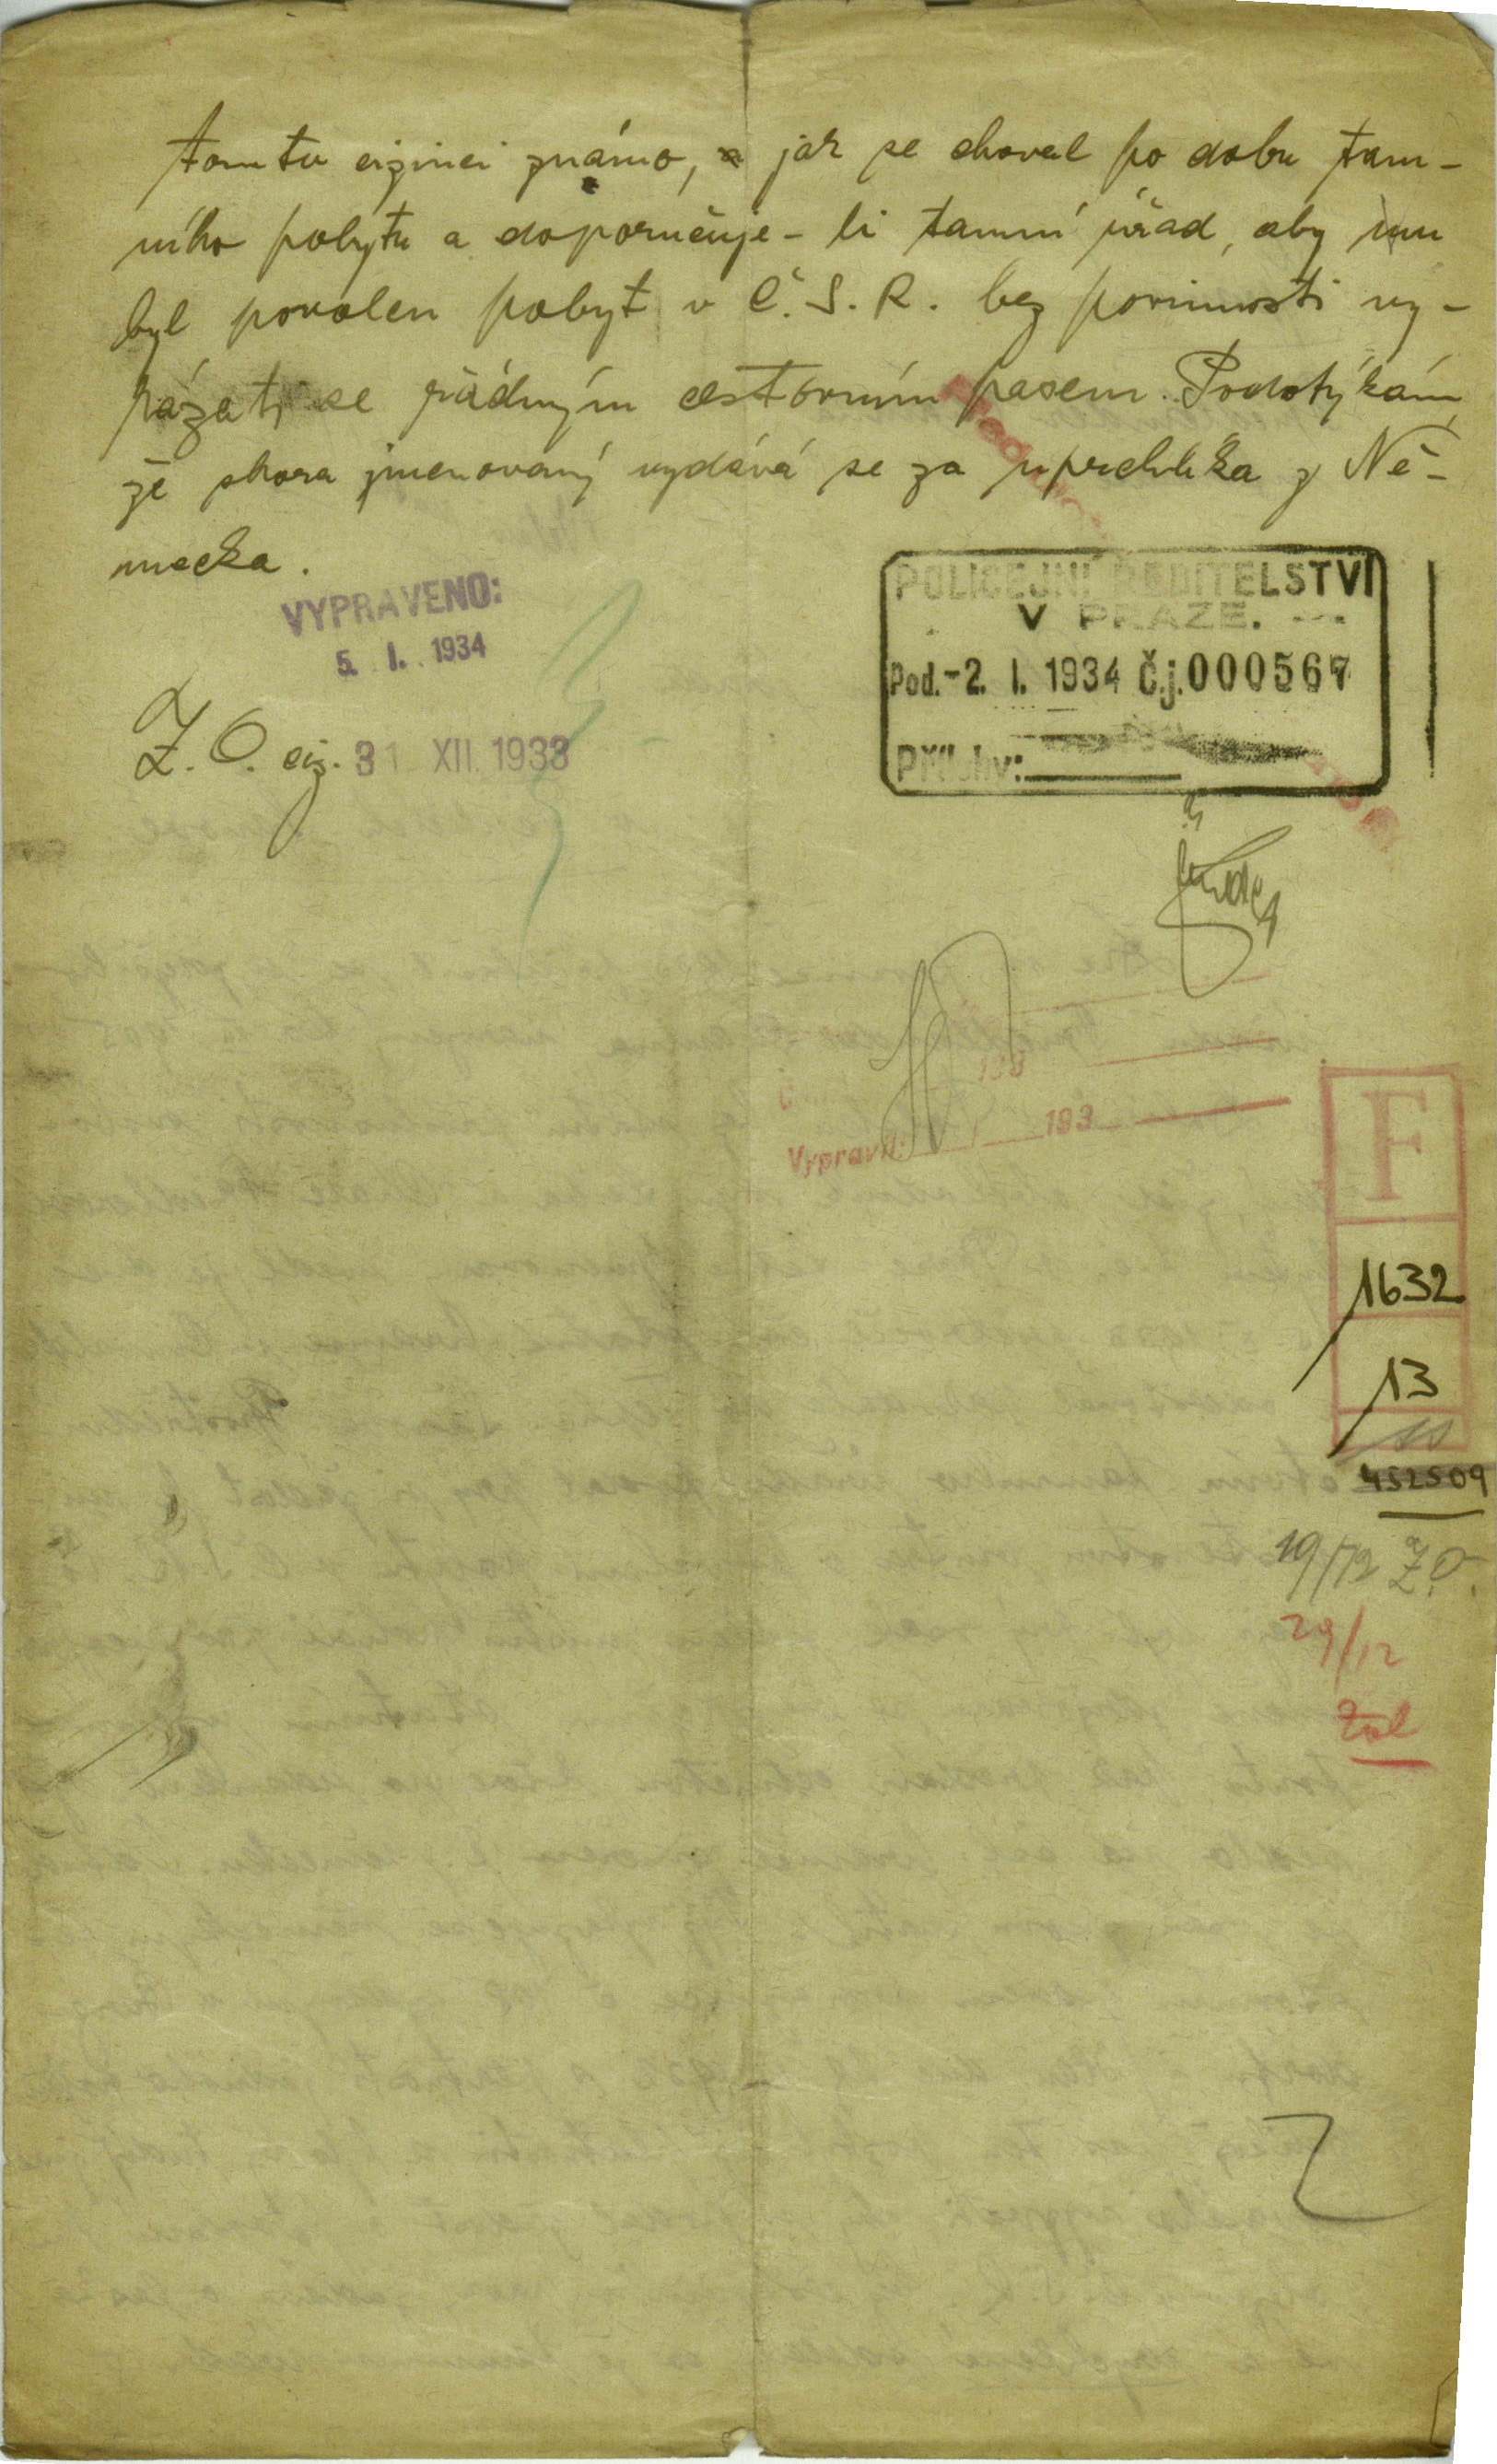 tomtu cizinci známo, jak se choval po dobu tam-
ního pobytu a doporučuje-li tamní úřad, aby mu
byl povolen pobyt v Č.S.R. bez povinnosti vy-
kázati se řádným cestovním pasem. Podotýkám,
že shora jmenovaný vydává se za uprchlíka z Ně-
mecka.
VYPRAVENO:
5. I. 1934
POLICEJNÍ ŘEDITELSTVÍ
V PRAZE.
Pod. -2. I. 1934 Č.j. 000567
Přílohy:
Z. O. ciz. 31 XII. 1933
193
Vypravil: 193
F
1632
13
452509
19/12 Z.O.
29/12